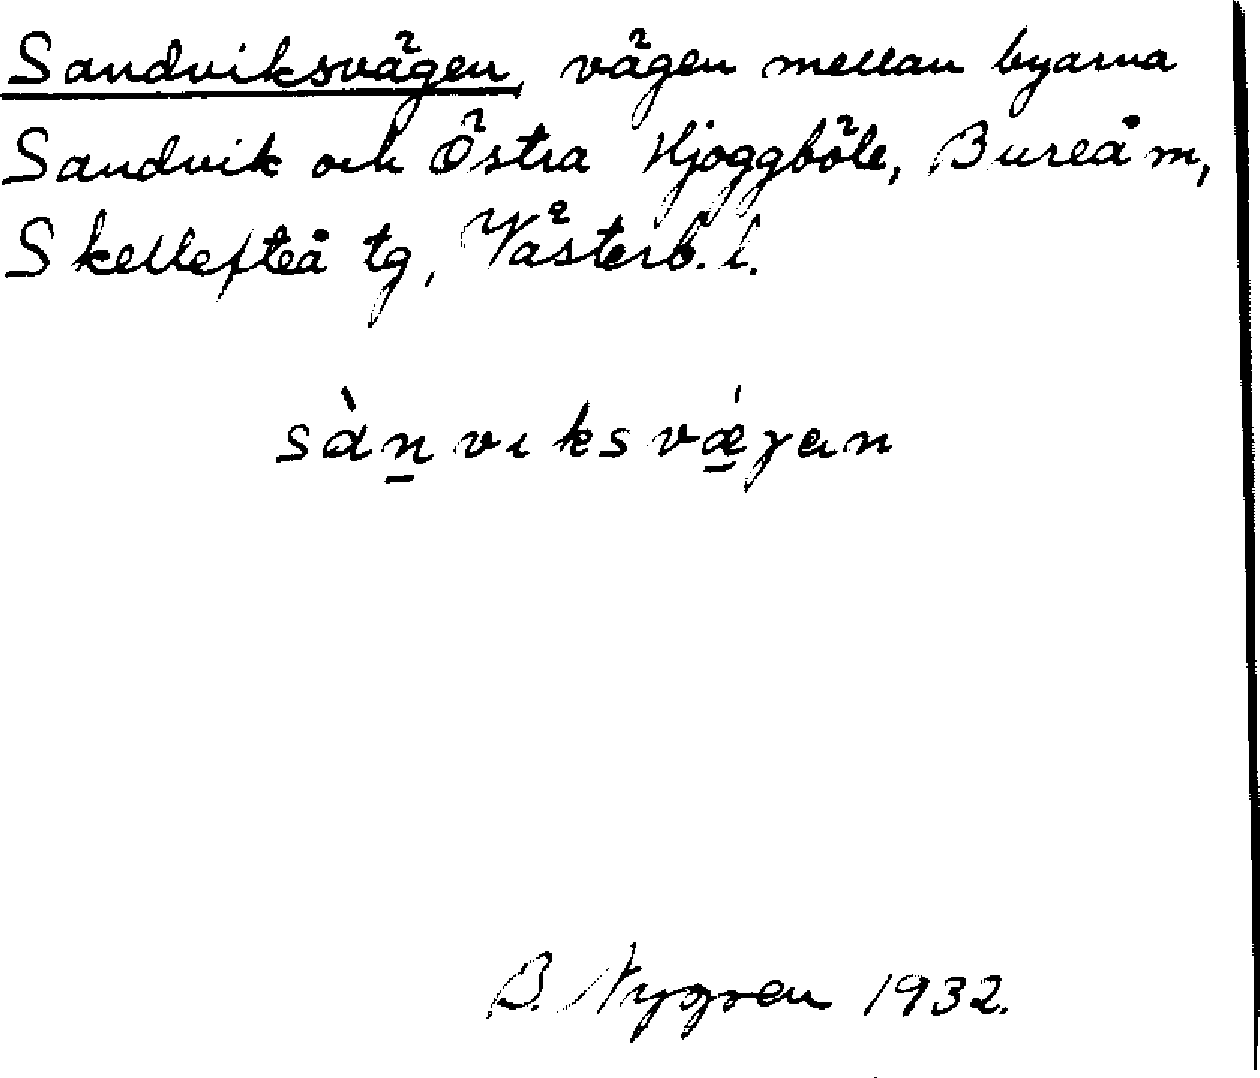 Sandviksvägen, vägen mellan byarna
Sandvik och Östra Hjoggböle, Bureå m,
Skellefteå tg, Västerb. l.
sàn̠viksvǽ̠gen
B. Nygren 1932.